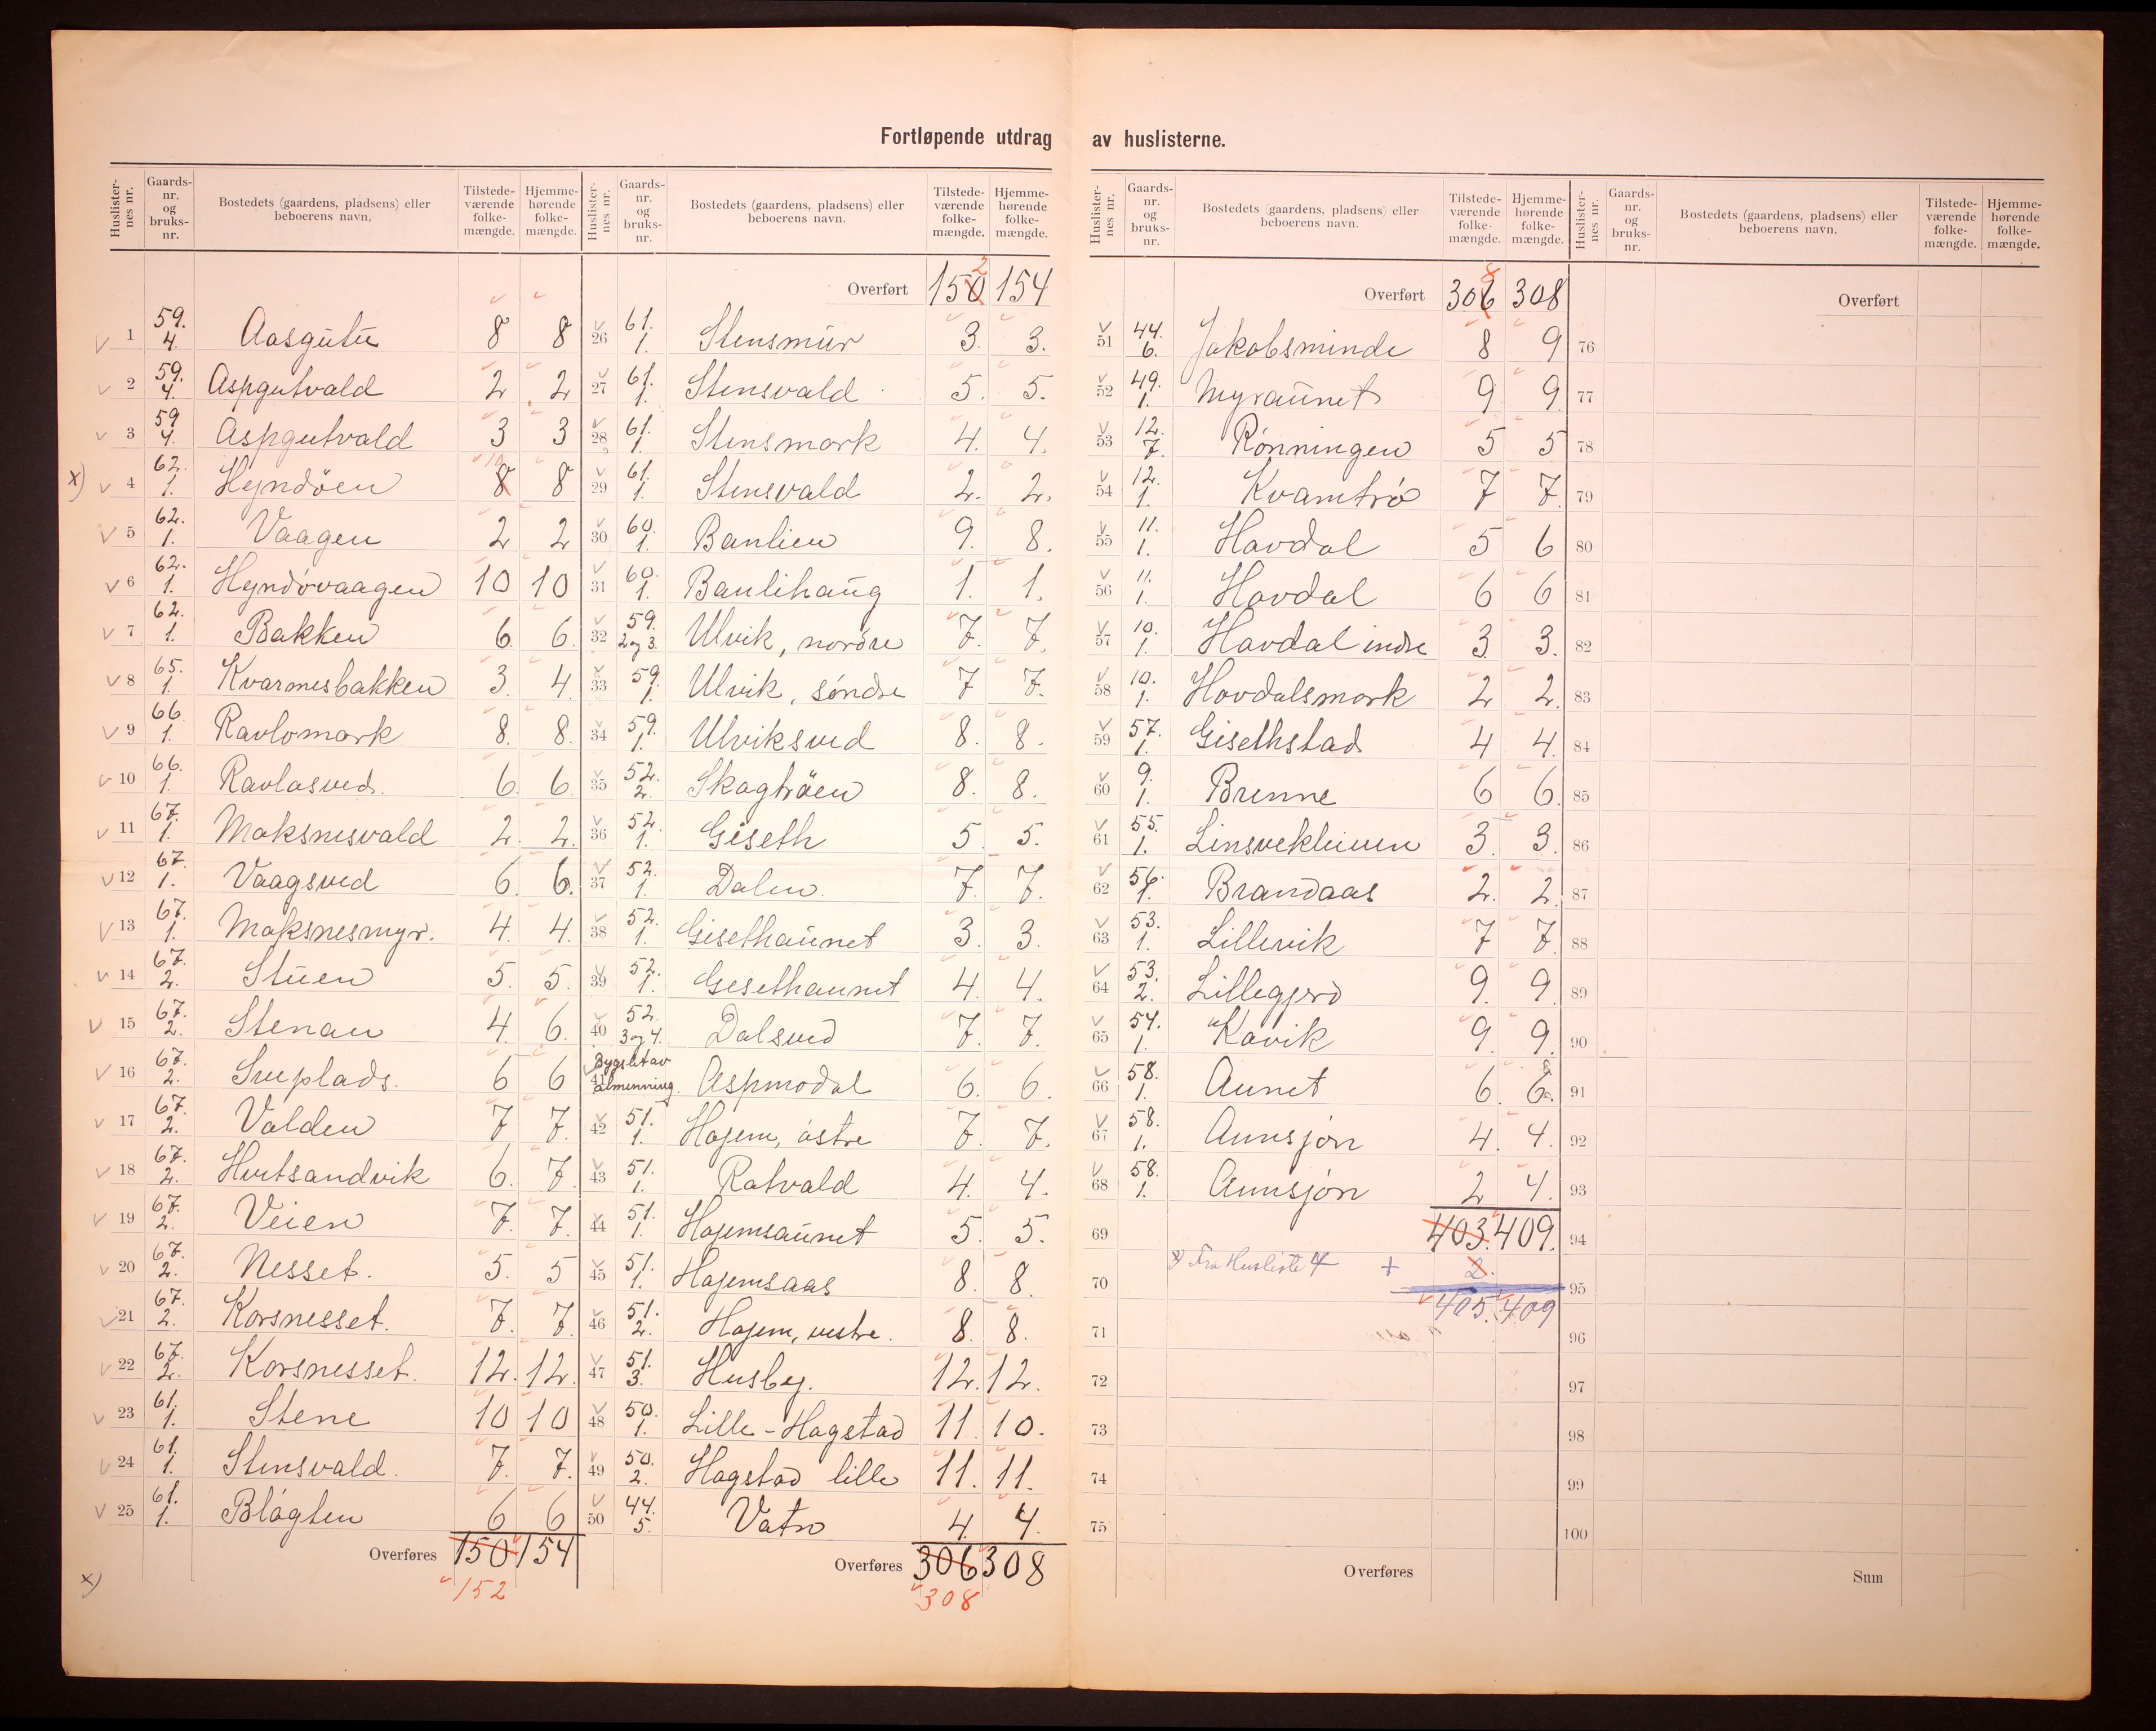 Fortløpende utdrag av huslisterne.
Huslister-nes nr. | Gaards-nr. og bruks-nr. | Bostedets (gaardens, pladsens) eller beboerens navn. | Tilstede-værende folke-mængde. | Hjemme-hørende folke-mængde.
1 59. 4. Aasgutu 8 8
2 59. 4. Aspgutvald 2 2
3 59 4. Aspgutvald 3 3
x) 4 62. 1. Hyndöen 8 10 8
5 62. 1. Vaagen 2 2
6 62. 1. Hyndövaagen 10 10
7 62. 1. Bakken 6. 6.
8 65. 1. Kvarmesbakken 3. 4.
9 66. 1. Ravlomark 8. 8.
10 66. 1. Ravlasved. 6. 6.
11 67. 1. Moksnesvald 2. 2.
12 67. 1. Vaagsved 6. 6.
13 67. 1. Moksnesmyr. 4. 4.
14 67. 2. Stuen 5. 5.
15 67. 2. Stenau 4. 6.
16 67. 2. Sveplads. 6 6
17 67. 2. Valden 7 7.
18 67. 2. Hvitsandvik 6. 7.
19 67. 2. Veien 7. 7.
20 67. 2. Nesset. 5. 5
21 67. 2. Korsnesset. 7. 7.
22 67. 2. Korsnesset. 12. 12.
23 61. 1. Stene 10 10
24 61. 1. Stensvald. 7. 7.
25 61. 1. Blågten 6 6
Overføres 150 154
152
x)
Huslister-nes nr. | Gaards-nr. og bruks-nr. | Bostedets (gaardens, pladsens) eller beboerens navn. | Tilstede-værende folke-mængde. | Hjemme-hørende folke-mængde.
Overført 150 2 154
26 61. 1. Stensmur 3. 3.
27 61. 1. Stensvald 5. 5.
28 61. 1. Stensmark 4. 4.
29 61. 1. Stensvald 2. 2.
30 60. 1. Banlien 9. 8.
31 60. 1. Baulihaug 1. 1.
32 59. 2 og 3. Ulvik, nordre 7. 7.
33 59. 1. Ulvik, söndre 7 7.
34 59. 1. Ulviksved 8. 8.
35 52. 2. Skogtröen 8. 8.
36 52. 1. Giseth 5. 5.
37 52. 1. Dalen. 7. 7.
38 52. 1. Gisethaunet 3. 3.
39 52. 1. Gisethaunet 4. 4.
40 52. 3 og 4. Dalsved 7. 7.
41 Bygslet av almenning. Aspmodal 6. 6.
42 51. 1. Hojem, östre 7. 7.
43 51. 1. Ratvald 4. 4.
44 51. 1. Hojemsaunet 5. 5.
45 51. 1. Hojemsaas 8. 8.
46 51. 2. Hojem, vestre. 8. 8.
47 51. 3. Husby. 12. 12.
48 50. 1. Lille-Hagstad 11. 10.
49 50. 2. Hagstad lille 11. 11.
50 44. 5. Vatn 4. 4.
Overføres 306 308
308
Huslister-nes nr. | Gaards-nr. og bruks-nr. | Bostedets (gaardens, pladsens) eller beboerens navn. | Tilstede-værende folke-mængde. | Hjemme-hørende folke-mængde.
Overført 306 8 308
51 44. 6. Jakobsminde 8 9
52 49. 1. Myraunet 9 9.
53 12. 7. Rönningen 5 5
54 12. 1. Kvamtrö 7 7.
55 11. 1. Havdal 5 6
56 11. 1. Havdal 6 6
57 10. 1. Havdal indre 3. 3.
58 10. 1. Hovdalsmork 2 2.
59 57. 1. Gisethstad 4 4.
60 9. 1. Brenne 6 6.
61 55. 1. Linsvekleiven 3. 3.
62 56. 1. Brandaas 2. 2.
63 53. 1. Lillevik 7 7.
64 53. 2. Lillegjerd 9. 9.
65 54. 1. Kavik 9. 9.
66 58. 1. Aunet 6. 6.
67 58. 1. Aunsjön 4. 4.
68 58. 1. Aunsjön 2 4.
69 403. 409.
70 x) Fra Husliste 4 + 2.
405. 409
71
72
73
74
75
Overføres
Huslister-nes nr. | Gaards-nr. og bruks-nr. | Bostedets (gaardens, pladsens) eller beboerens navn. | Tilstede-værende folke-mængde. | Hjemme-hørende folke-mængde.
Overført
76
77
78
79
80
81
82
83
84
85
86
87
88
89
90
91
92
93
94
95
96
97
98
99
100
Sum